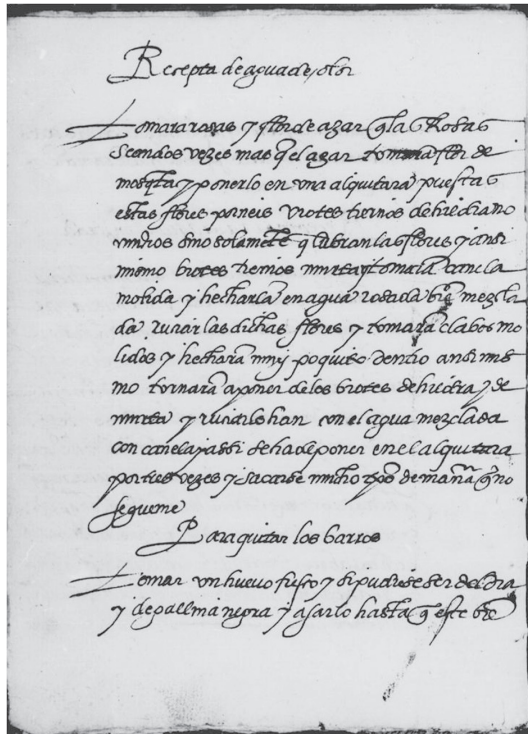 Recepta de agua de, olor
tomara rosas y flor de azar q̃ las Rosas
sean dos vezes mas q̃ el azar tomara flor de
mosq̃ta y ponerlo en vna alquitara puestas
estas flores porneis vrotes tiernos de hiedra no
muchos sino solamẽte q̃ cubran las flores y ansi
mismo brotes tiernos murta y tomarã canela
molida y hecharla en agua rosada biẽ mezcla
da ruziar las dichas flores y tomarã clabos mo
lidos y hecharã muy poquito dentro ansi mis
mo tornarã a poner de los brotes de hiedra y de
murta y ruziarlo han con el agua mezclada
con canela y assi se ha de poner en el alquitara
por tres vezes y sacarse mucho tpõ de manera q̃ no
se queme
Para quitar los barros
tomar vn huevo fresco y si pudiese ser del dia
y de gallina negra y asarlo hasta q̃ este biẽ